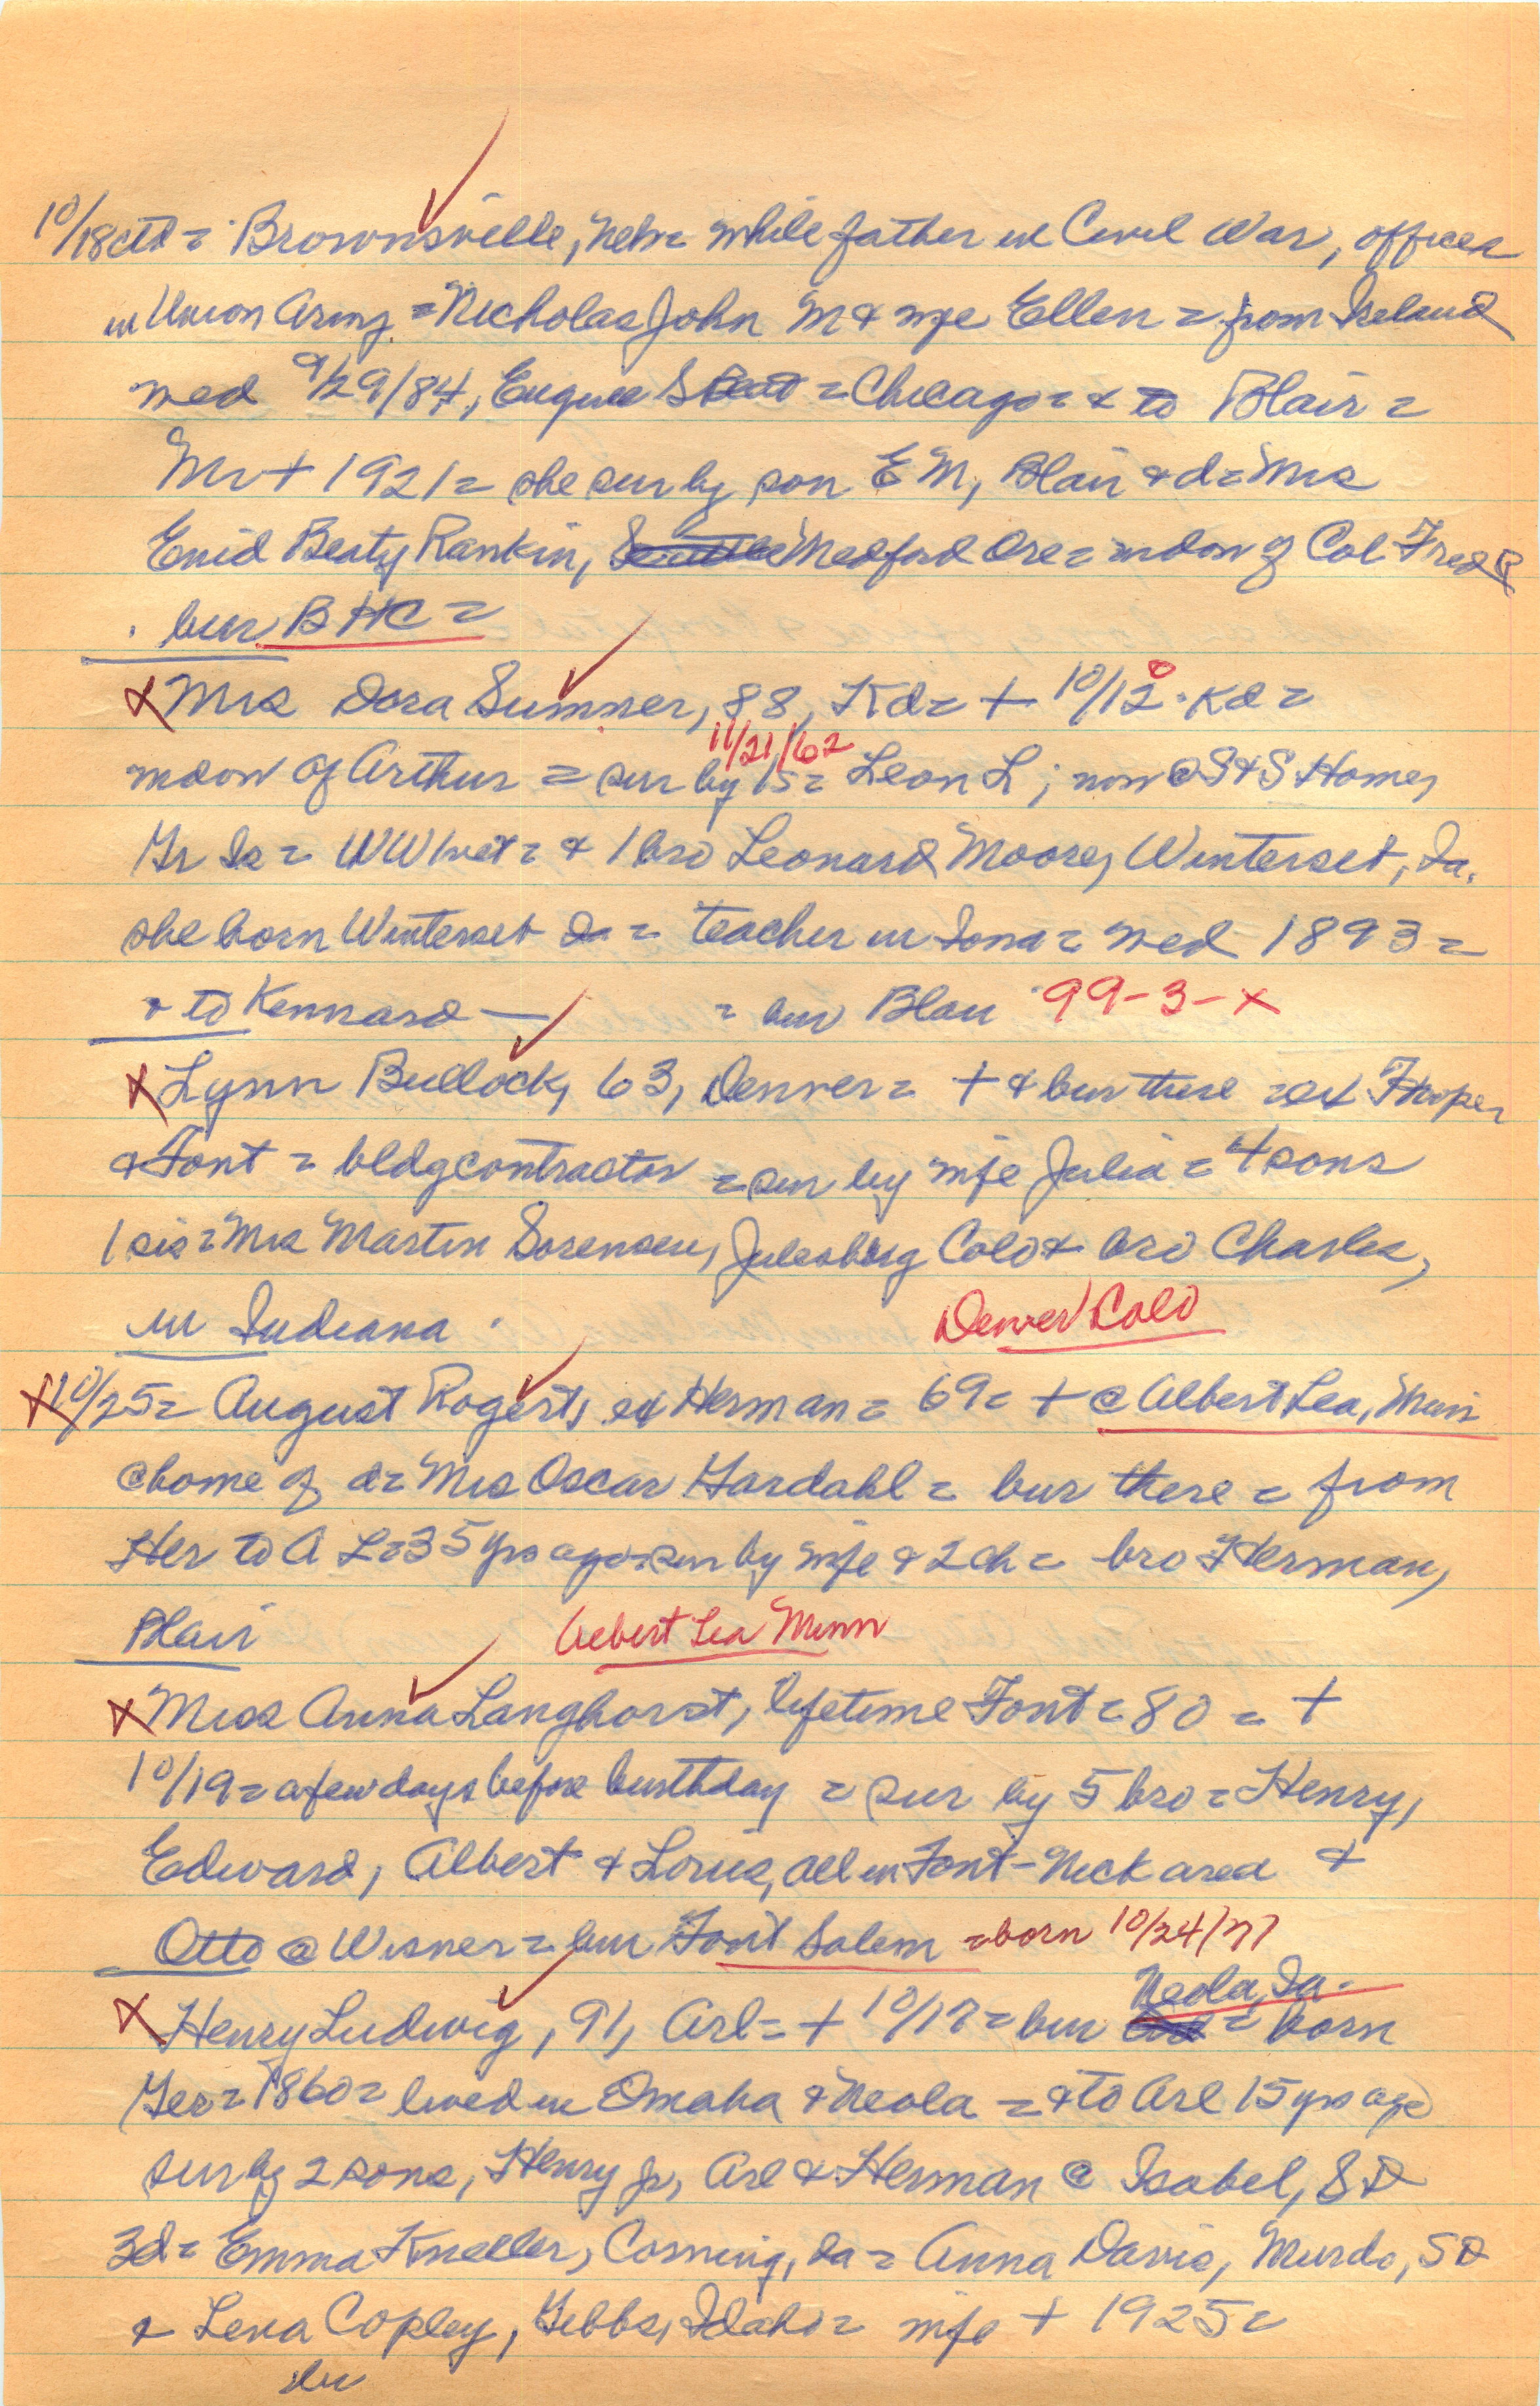 10/18 ctd = Brownsville, Neb = while father in Civil War, officer
in Union Army = Nicholas John M & wfe Ellen = from Ireland
med 9/29/84, Eugene S = Chicago = & to Blair =
Mr + 1921 = she sur by son E M, Blair & d = Mrs
Enid Beaty Rankin, Medford Ore = wdow of Col Fred R
bur BHC =
x Mrs Dora Sumner, 88, Kd = + 10/12 · Kd =
11/21/62
wdow of Arthur = sur by 1 S = Leon L; now @ S&S Home,
Gr Is = WW1 vet = & 1 bro Leonard Moore, Winterset, Ia.
she born Winterset Ia = teacher in Iowa = med 1893 =
& to Kennard — = bur Blair 99-3-x
x Lynn Bullock, 63, Denver = + & bur there = ex Hooper
& Font = bldg contractor = sur by wfe Julia = 4 sons
1 sis = Mrs Martin Sorensen, Julesburg Colo & bro Charles,
in Indiana. Denver Colo
x 10/25 = August Rogert, ex Herman = 69 = + @ Albert Lea, Minn
@ home of d = Mrs Oscar Hardahl = bur there = from
Her to A L = 35 yrs ago = sur by wfe & 2 ch = bro Herman,
Blair Albert Lea Minn
x Miss Anna Langhorst, lifetime Font = 80 = +
10/19 = a few days before birthday = sur by 5 bro = Henry,
Edward, Albert & Louis, all in Font-Nick area &
Otto @ Wisner = bur Font Salem = born 10/24/71
Neola, Ia -
x Henry Ludwig, 91, Arl = + 10/17 = bur = born
Ger = 1860 = lived in Omaha & Neola = & to Arl 15 yrs ago
sur by 2 sons, Henry Jr, Arl & Herman @ Isabel, S D
3 d = Emma Kneller, Corning, Ia = Anna Davis, Murdo, S D
& Lena Copley, Gibbs, Idaho = wife + 1925 =